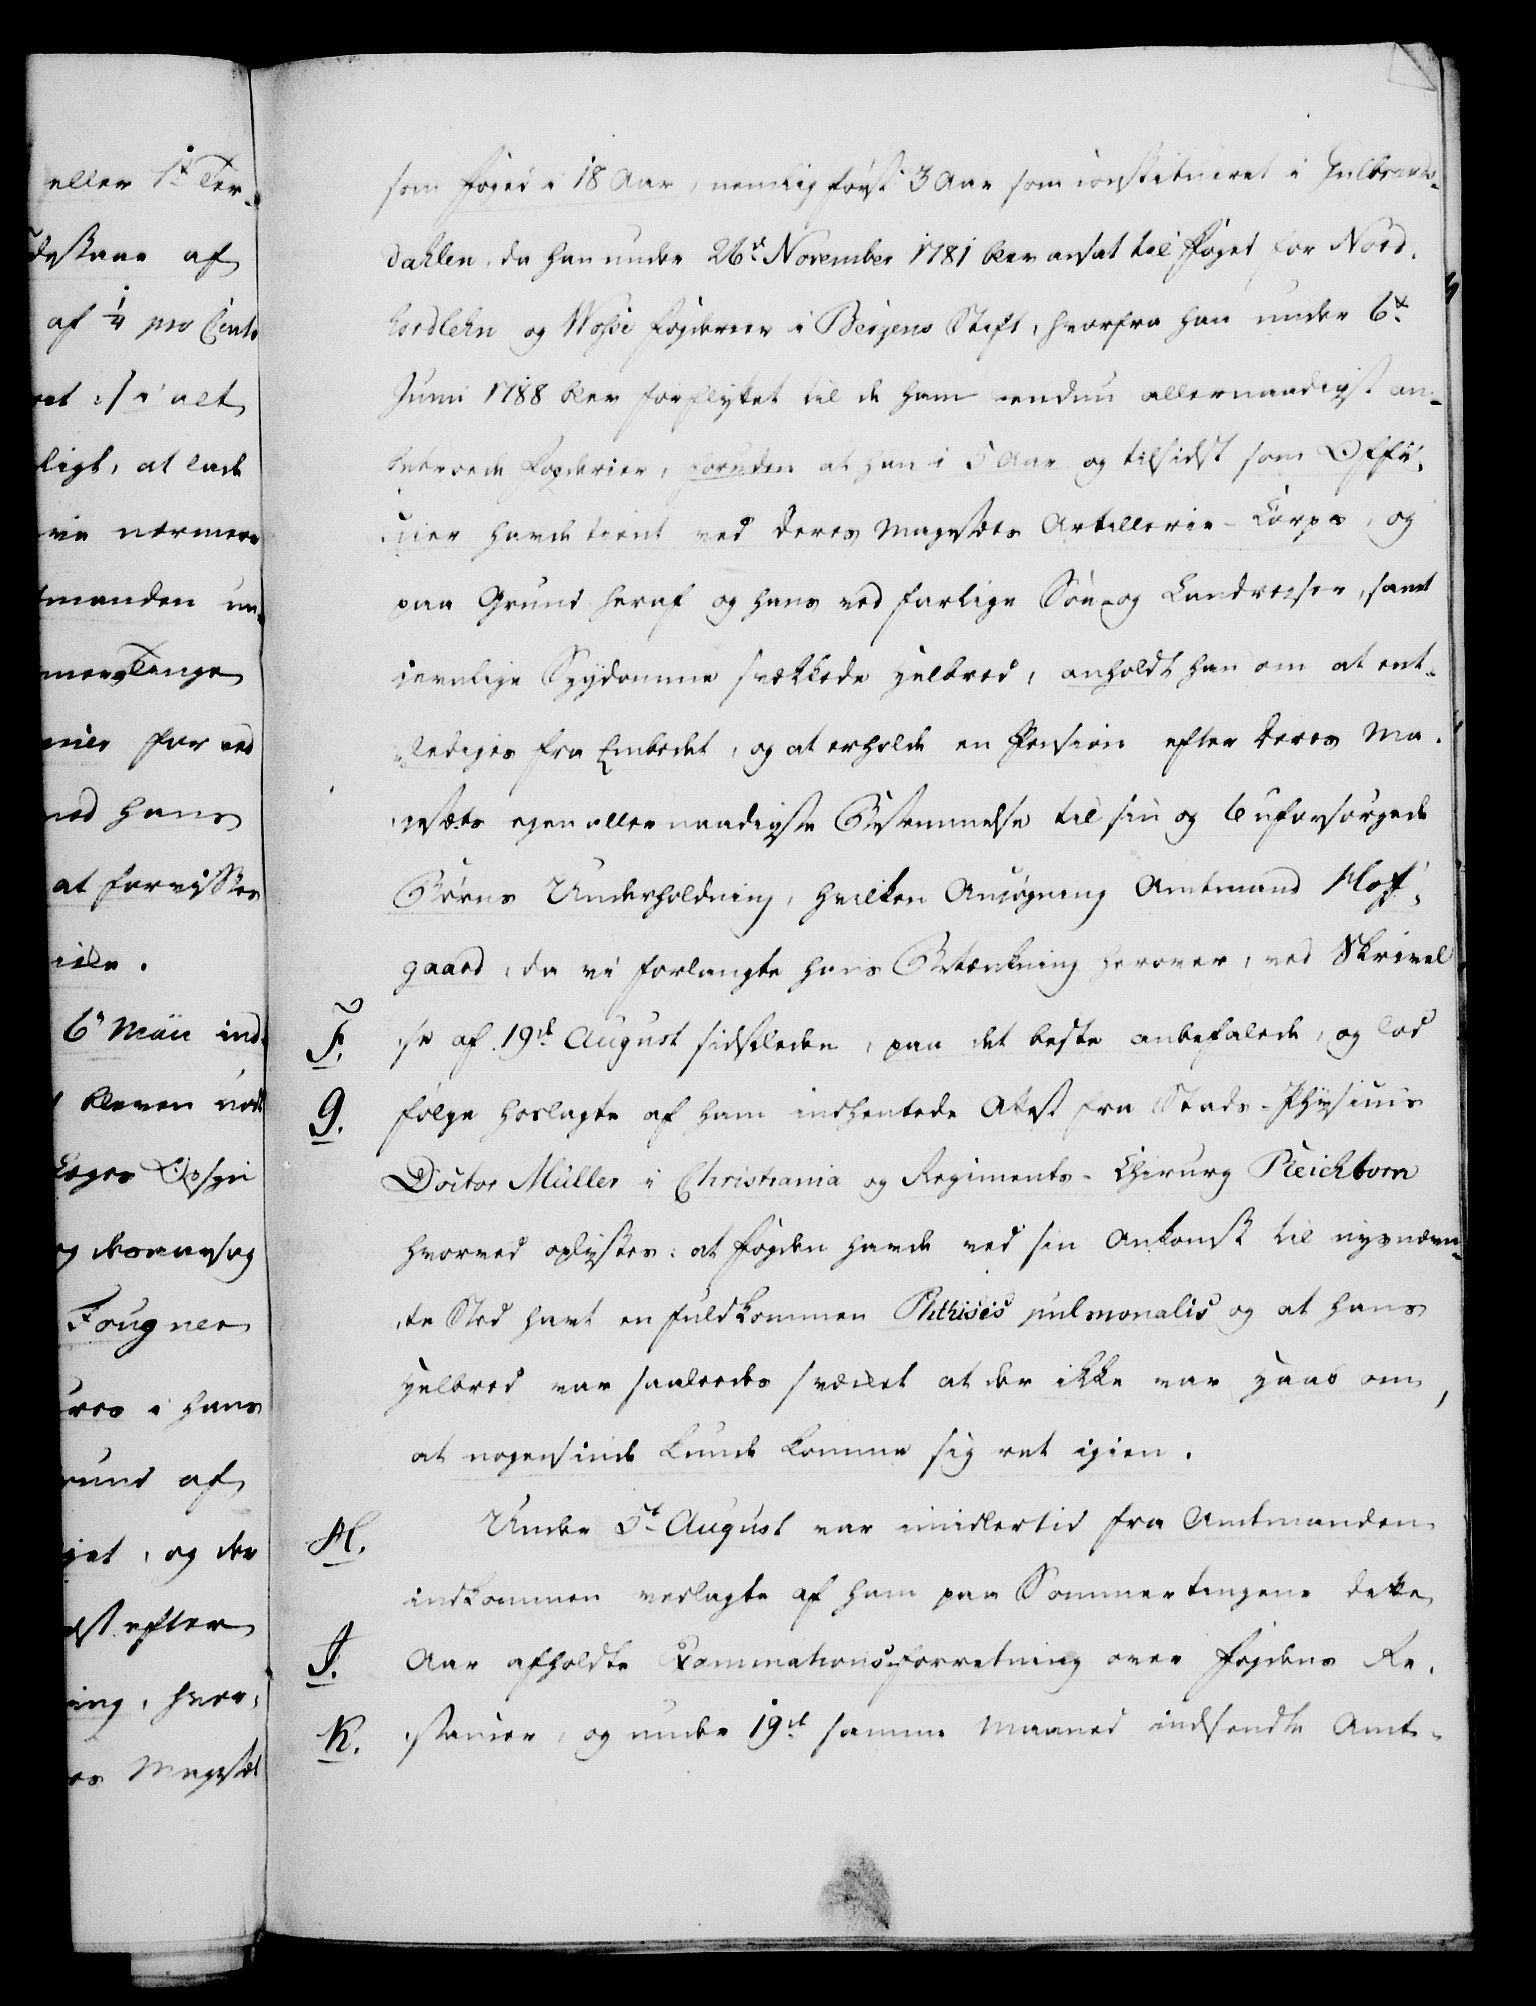 eller 1ste Ter-
af
af ¼ pro Cento
et :/ i alt
ligt, at lade
nærmere
manden un-
Tinge
for ved
ved hans
at forvisses
6te Maii ind-
bleven
Fougner
i hans
Grund af
og der
efter
ing, hvor-
Majestæt
som Foged i 18 Aar, nemlig først 3 Aar som constitueret i Gulbrands-
dahlen, da han under 26de November 1781 blev ansat til Foged for Nord-
hordlehn og Wosse Fogderier i Bergens Stift, hvorfra han under 6te
Junii 1788 blev forflyttet til de ham endnu allernaadigst an-
betroede Fogderier, foruden at han i 5 Aar og tilsidst som Offi-
cier havde tient ved Deres Majestæts Artillerie-Corps, og
paa Grund heraf og hans ved farlige Söe- og Landreiser, samt
jevnlige Sygdomme svækkede Helbred, anholdt han om at ent-
lediges fra Embedet, og at erholde en Pension efter Deres Ma-
jestæts egen allernaadigste Bestemmelse til sin og 6 uforsørgede
Børns Underholdning, hvilken Ansøgning Amtmand Hoff-
gaard, da vi forlangte hans Betænkning herover, ved Skrivel-
F. se af 19de August sidstleden, paa det beste anbefalede, og lod
G. følge hoslagte af ham indhentede Attest fra Stads-Physicus
Doctor Müller i Christiania og Regiments-Chirurg Reichborn
hvorved oplyses: at Fogden havde ved sin Ankomst til nysnævn-
te Sted havt en fuldkommen Phthisis pulmonalis og at hans
Helbred var saaledes svækket at der ikke var Haab om,
at nogensinde kunde komme sig ret igien.
H. Under 5te August var imidlertid fra Amtmanden
indkommen vedlagte af ham paa Sommertingene dette
I. Aar afholdte Examinationsforretning over Fogdens Re-
K. stancer, og under 19de samme Maaned indsendte Amt-